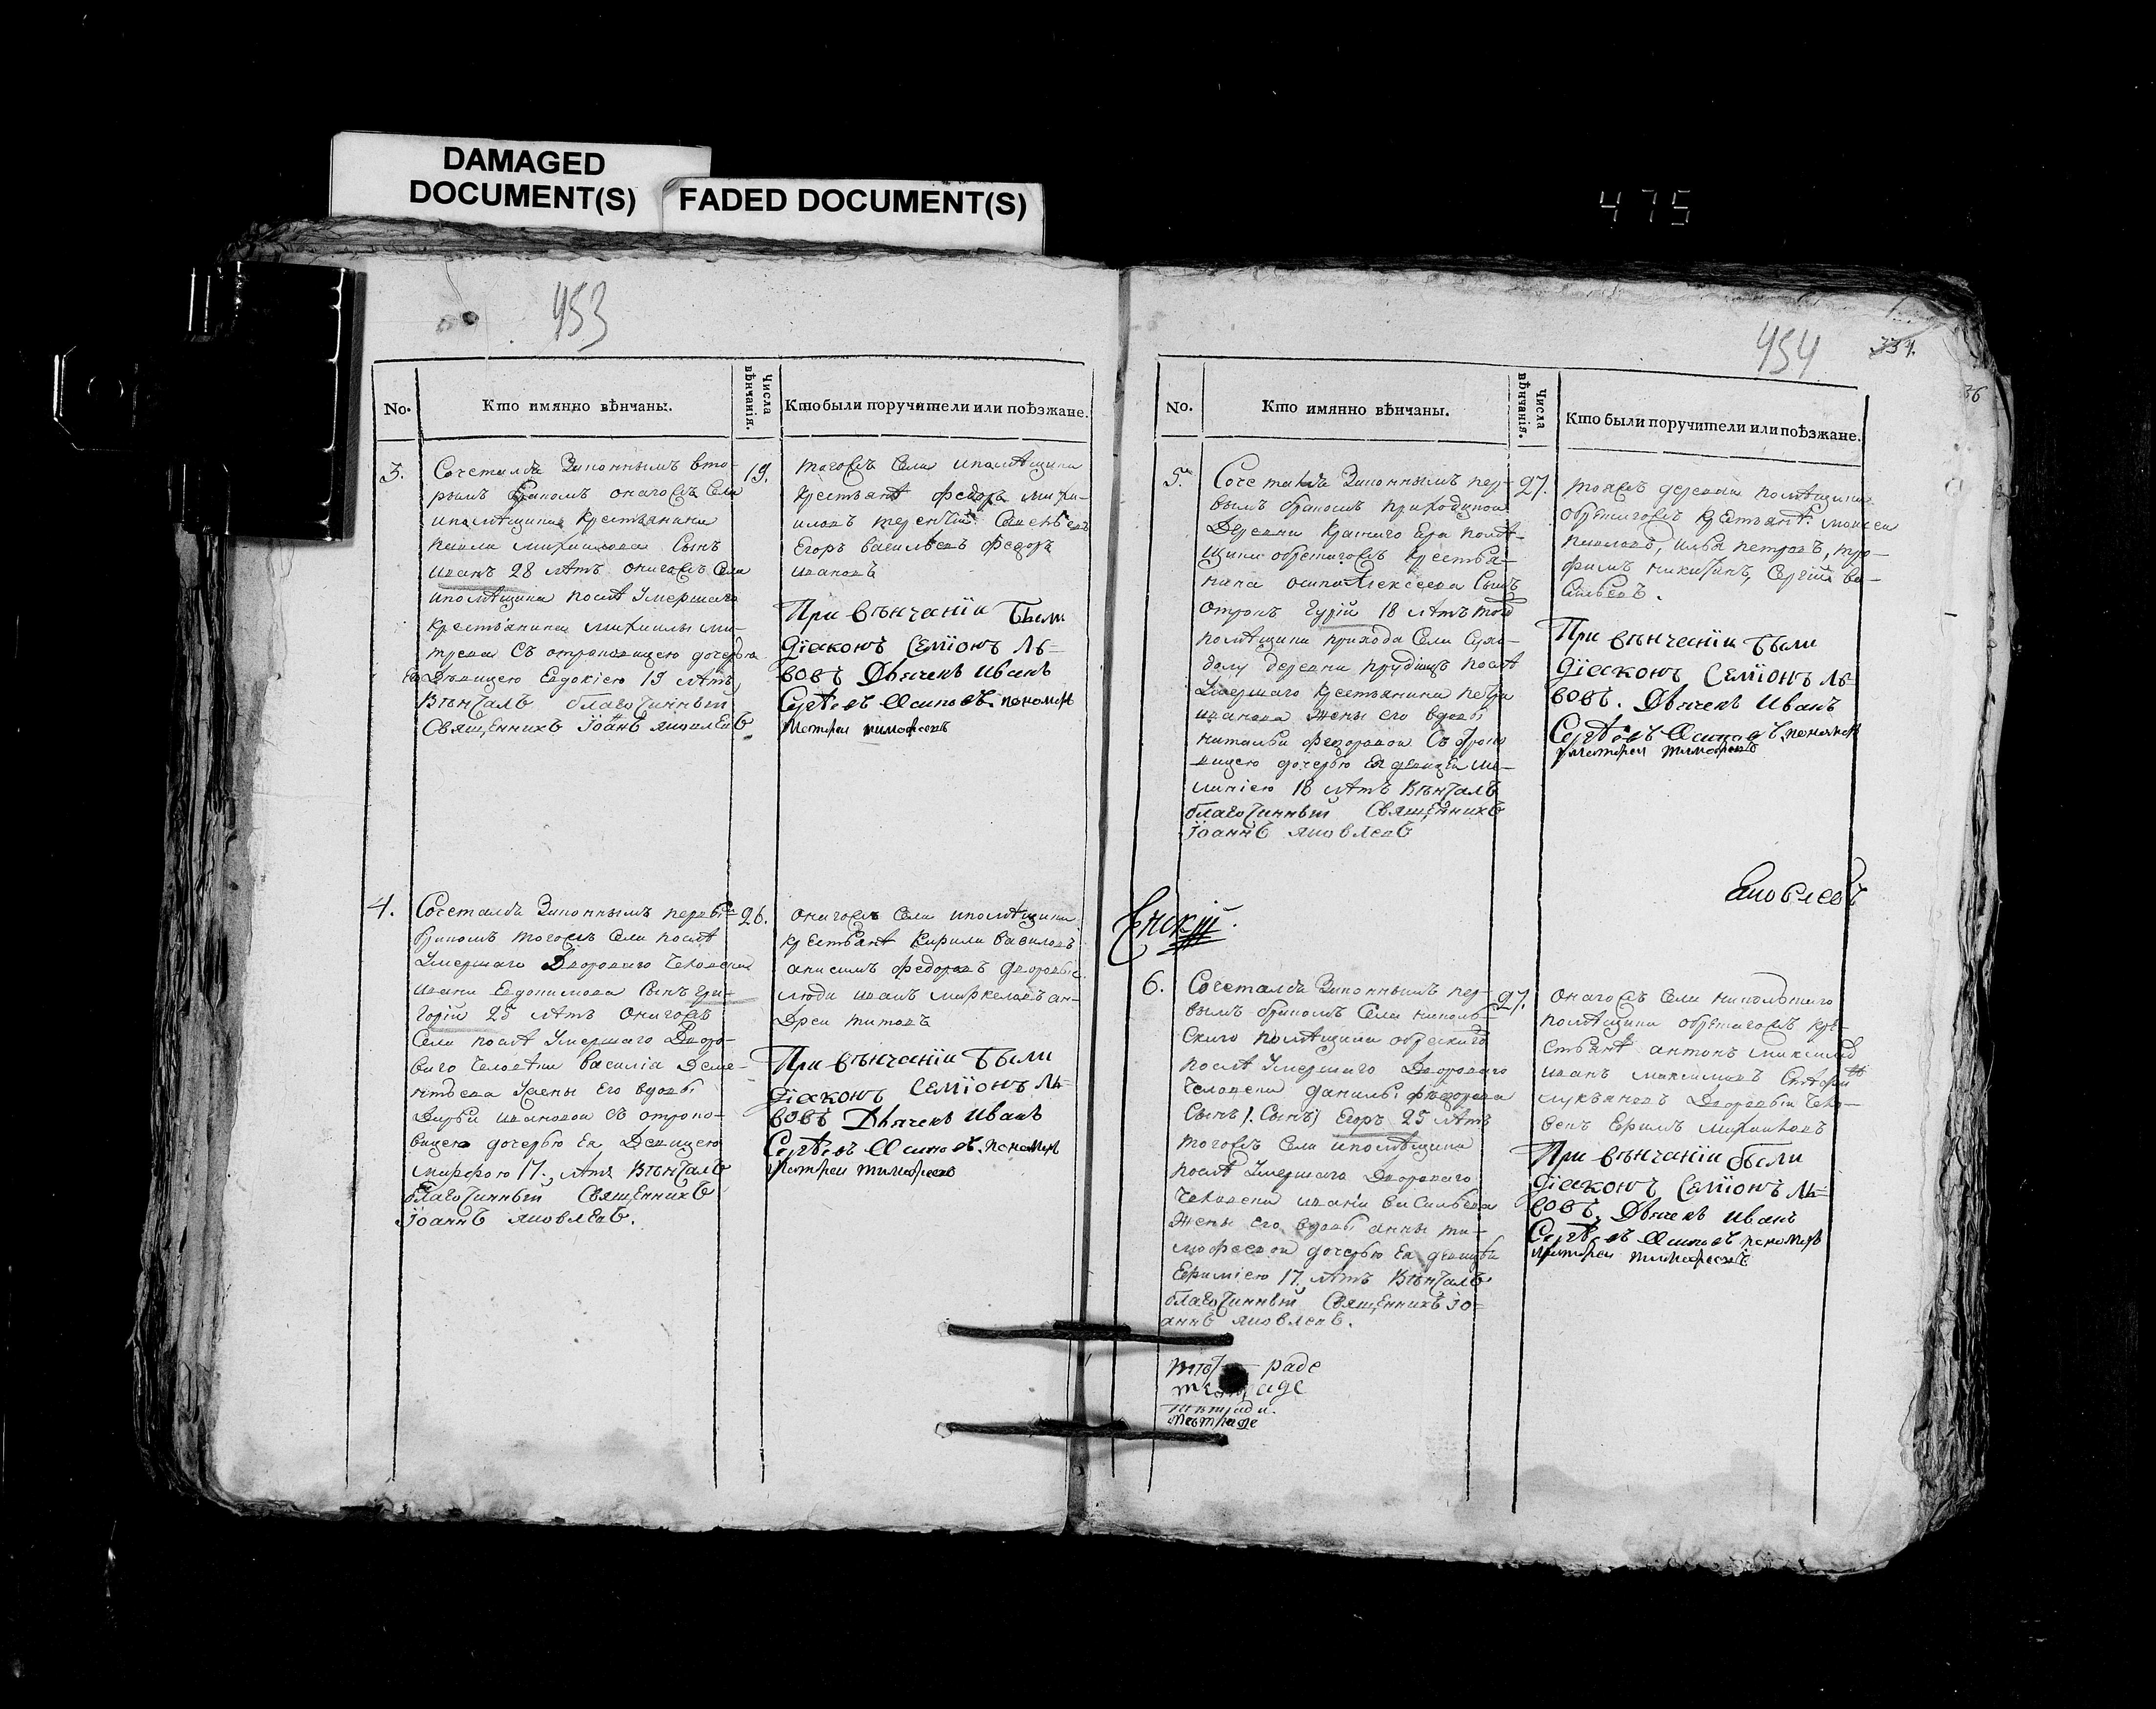 DAMAGED
DOCUMENT(S)
FADED DOCUMENT(S)
475
453
No.
Кто имянно вѣнчаны.
Числа
вѣнчанія.
Кто были поручители или поѣзжане.
3.
Сочеталъ Законнымъ вто-
рымъ бракомъ онагожъ Села
ипомѣщика Крестьянина
михаилова Сынъ
иванъ 28 лѣтъ онагожъ Села
ипомѣщика послѣ Умершаго
крестьянина михаилы ми-
Съ отроковицею дочерью
Дѣвицею Евдокіею 19 лѣтъ
Вѣнчалъ благочинный
Священникъ Іоанъ яковлевъ
19.
тогожъ Села ипомѣщика
крестьянѣ федоръ миха-
иловъ терентій
Егоръ васильевъ федоръ
ивановъ
При вѣнчаніи были
діаконъ Семіонъ Ль-
вовъ Дьячекъ Иванъ
Сергѣевъ Осиповъ. пономарь
тимофеевъ
4.
Сочеталъ Законнымъ первы
бракомъ тогожъ Села послѣ
Умершаго Дворового Человека
ивана Евдокимова Сынъ Гри-
горій 25 лѣтъ онагожъ
Села послѣ Умершаго Дворо-
ваго Человека василіа Деме-
нтьева Жены Его вдовы
Дарьи ивановой Съ отроко-
вицею дочерью Ея Девицею
марфою 17. лѣтъ Вѣнчалъ
благочинный Священникъ
Іоаннъ яковлевъ.
26.
онагожъ Села ипомѣщика
крестьянѣ Кирила
анисимъ федоровъ дворовые
люди иванъ маркеловъ ан-
Дреи титовъ
При вѣнчаніи были
діаконъ Семіонъ Ль=
вовъ Дьячекъ Иванъ
Сергѣевъ Осиповъ. пономарь
тимофеевъ
454
36
No.
Кто имянно вѣнчаны.
Числа
вѣнчанія.
Кто были поручители или поѣзжане.
5.
Сочеталъ Законнымъ пер-
вымъ бракомъ приходской
Деревни помѣ-
щика крестья-
нина осипа Алексеева Сынъ
отрокъ Гурій 18 лѣтъ
помѣщика прихода Села Сухо-
долу деревни прудищъ послѣ
Умершаго крестьянина петра
иванова Жены его вдовы
натальи федоровой Съ отроко
вицею дочерью Ея девицею ме-
ланіею 18 лѣтъ Вѣнчалъ
благочинный Священникъ
Іоаннъ яковлевъ
27.
деревни помѣщика
крестьянѣ
илья петровъ, тро-
фимъ никитинъ, Сергѣй ва-
сильевъ.
При вѣнчаніи были
діаконъ Семіонъ Ль=
вовъ. Дьячекъ Иванъ
Сергѣевъ Осиповъ. пономарь
тимофеевъ
Яковлевъ
6.
Сочеталъ Законнымъ пер-
вымъ бракомъ Села николь-
скаго помѣщика
послѣ Умершаго Двороваго
Человека данилы федорова
Сынъ /. Сынъ) Егоръ 25 лѣтъ
тогожъ Села ипомѣщика
послѣ Умершаго Двороваго
Человека ивана васильева
Жены его вдовы анны ти-
мофеевой дочерью Ея девицею
Ефиміею 17. лѣтъ Вѣнчалъ
благочинный Священникъ Іо=
аннъ яковлевъ.
27.
онагожъ Села никольскаго
помѣщика кре-
стьянѣ антонъ
иванъ максимовъ
лукъяновъ Дворовый Чело-
векъ Ефимъ михаиловъ
При вѣнчаніи были
діаконъ Семіонъ Ль=
вовъ. Дьячекъ Иванъ
Сергѣевъ Осиповъ пономарь
тимофеевъ